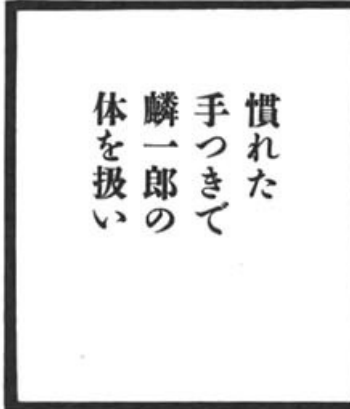 慣れた
手つきで
麟一郎の
体を扱い